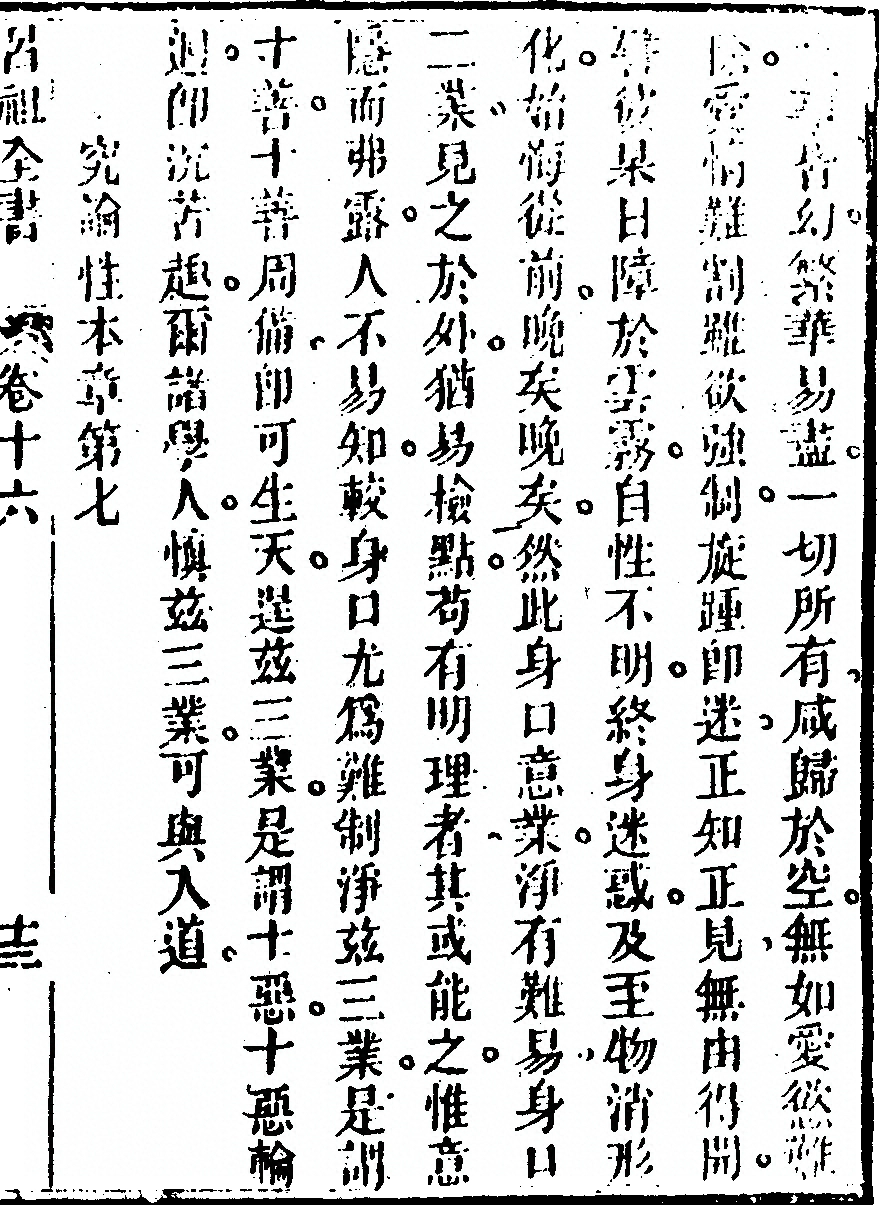 皆幻繁華易盡一切所有咸歸於空無如愛慾難
除愛情難割雖欲強制旋踵即迷正知正見無由得開
譬彼杲日障於雲霧自性不明終身迷惑及至物消形
化始悔從前晚矣晚矣然此身口意業淨有難易身口
二業見之於外猶易檢點苟有明理者其或能之惟意
隱而弗露人不易知較身口尤為難制淨茲三業是謂
十善十善周備即可生天逞茲三業是謂十惡十惡輪
迴即沉苦趣爾諸學人慎茲三業可與入道
究論性本章第七
呂祖全書 卷十六 十三